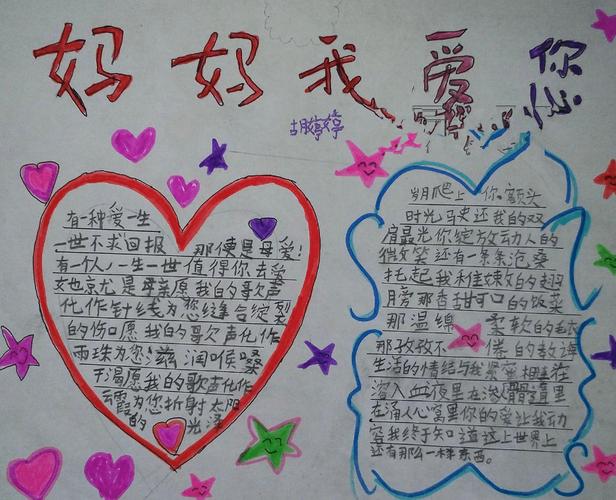 妈妈我爱你
胡婷婷
有一种爱一生
一世不求回报 那便是母爱!
有一个人一生一世值得你去爱
她就是母亲愿我的歌声
化作针线为您缝合绽裂
的伤口愿我的歌声化作
雨珠为您滋润喉嗓
干渴愿我的歌声化作
云霞为您折射太阳
的光泽
岁月爬上你额头
时光 还我的双
肩最 你绽放动人的
微笑还有一条条沧桑
托起我和 的翅
膀那香甜可口的饭菜
那温绵 柔软的毛衣
那孜孜不 倦的教诲
生活的情结与我紧紧相连在
溶入血液里在渗 里
在涌人心窝里你的爱让我动
容我终于知道这世界上
还有那么一样东西。